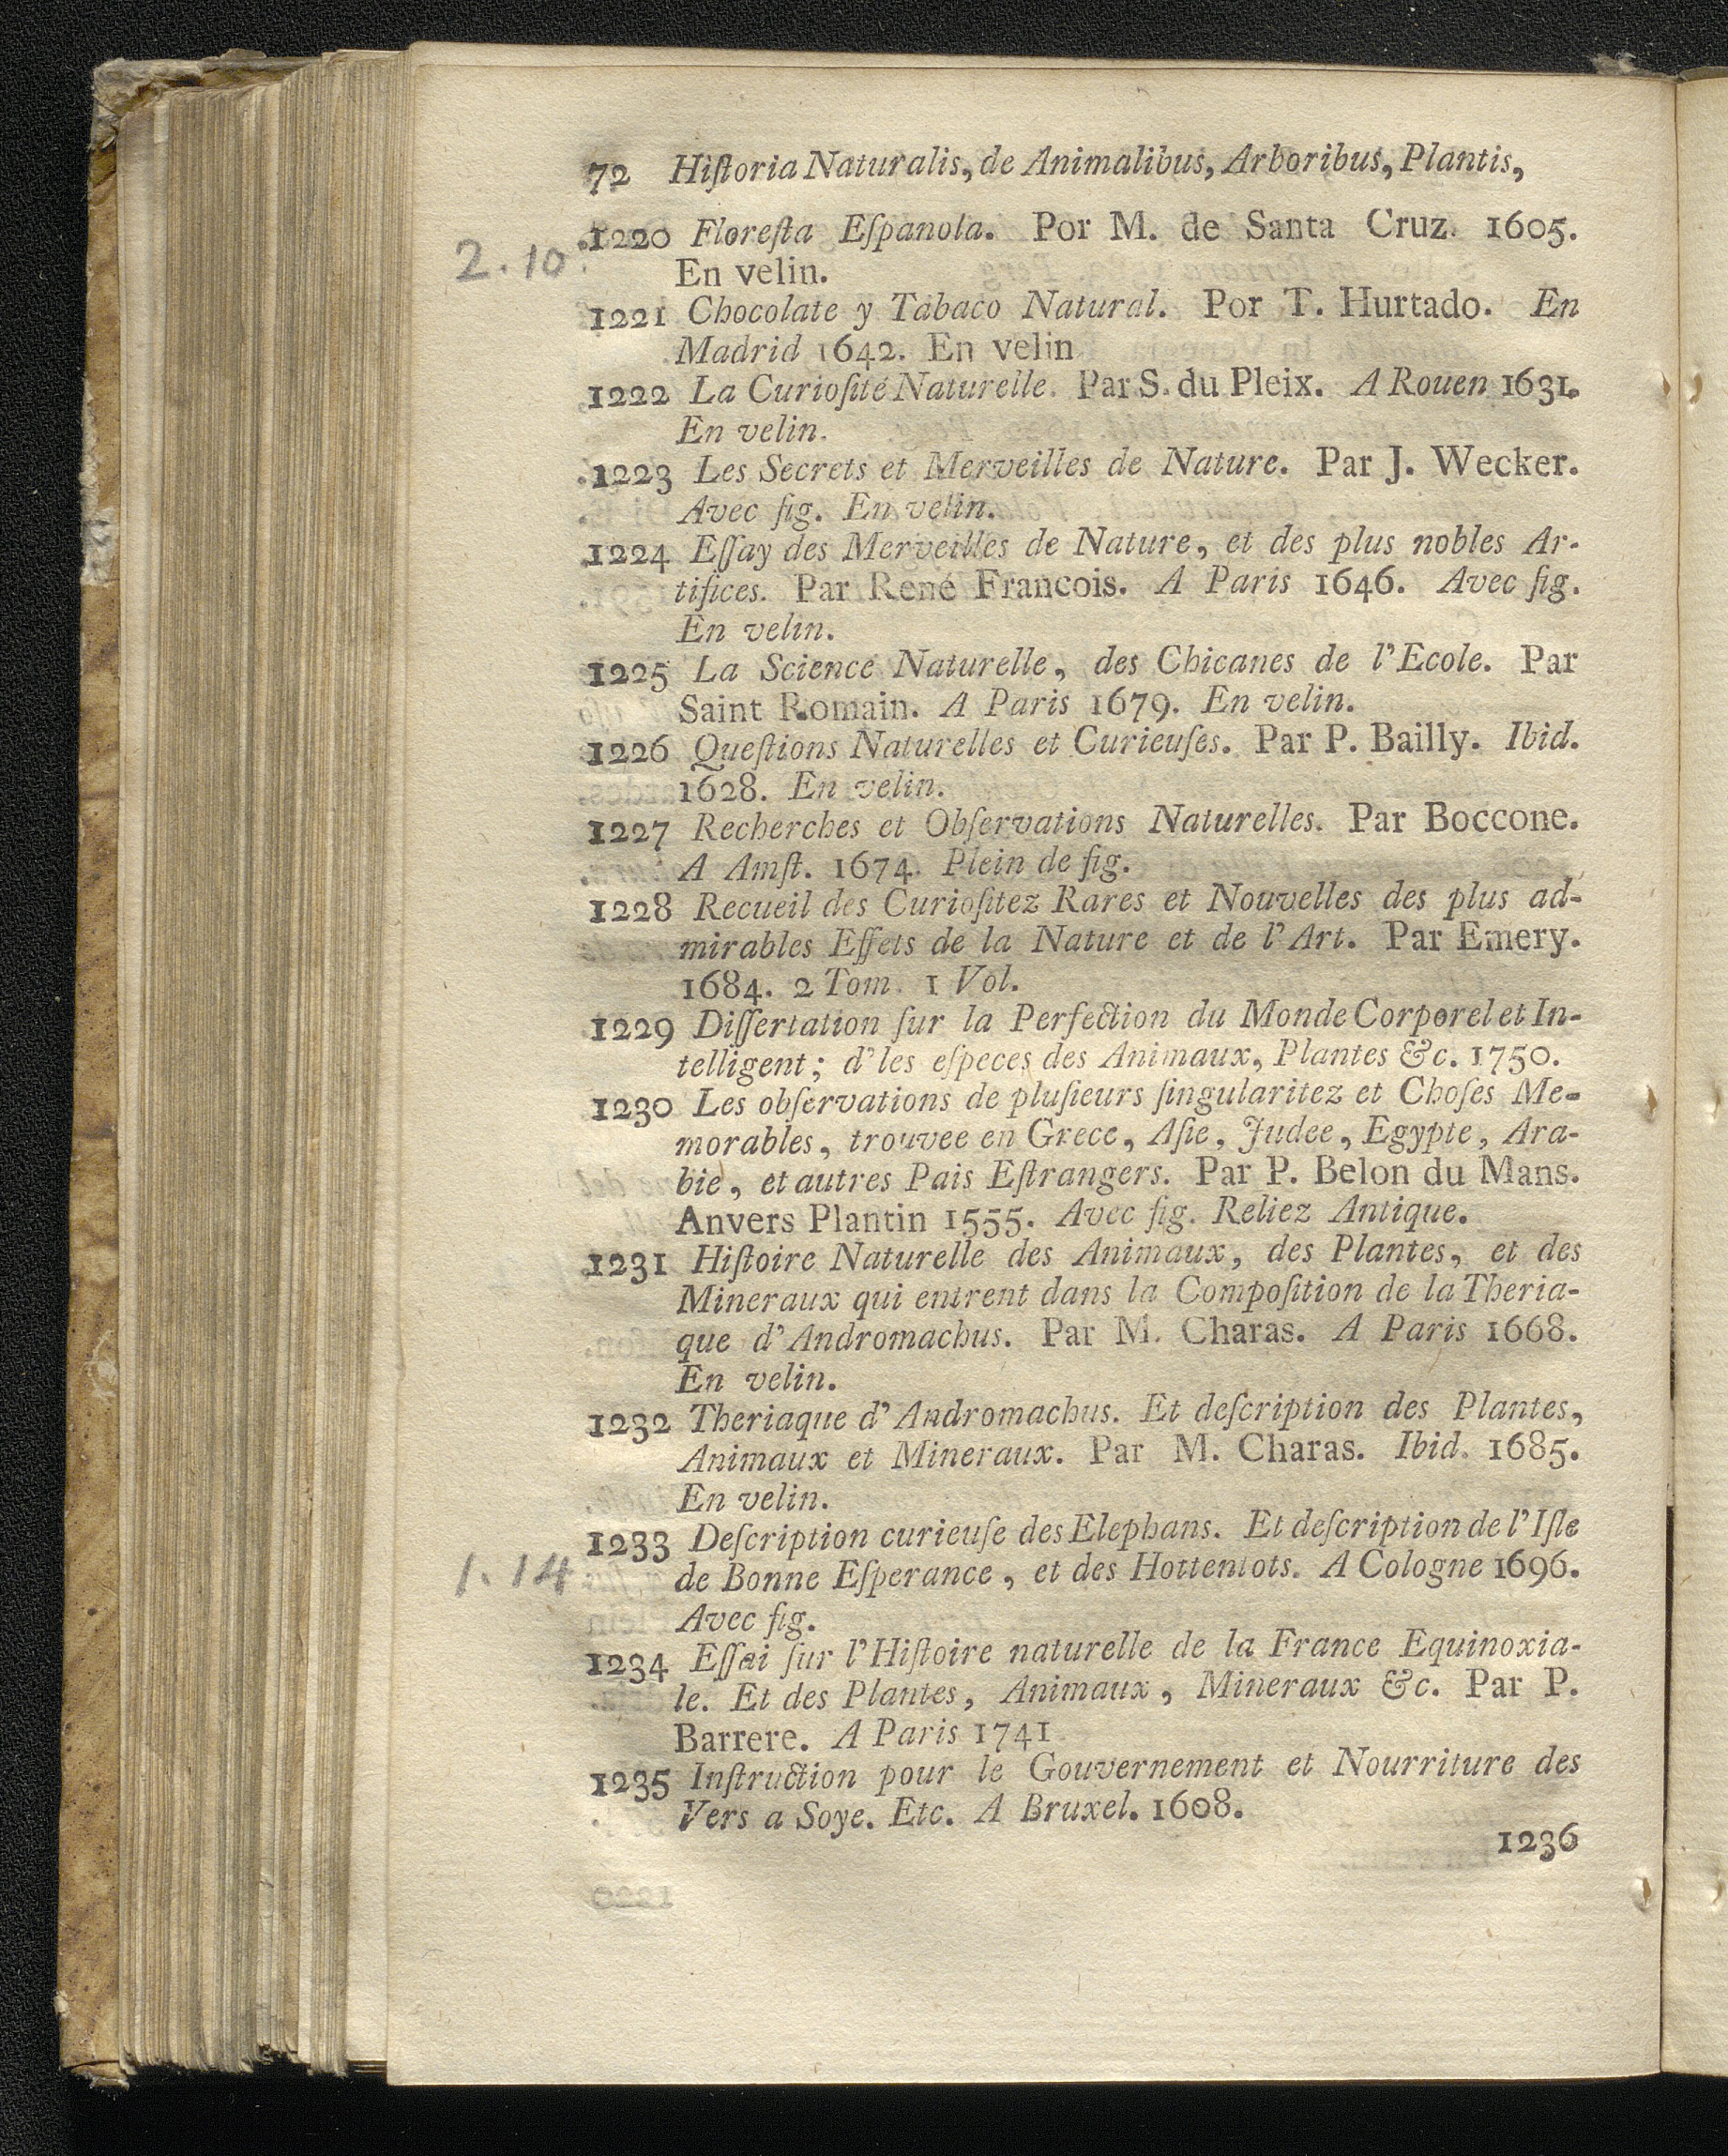 72 Hiſtoria Naturalis, de Animalibus, Arboribus, Plantis,
1220 Floreſta Eſpanola. Por M. de Santa Cruz. 1605.
2.10.
En velin.
1221 Chocolate y Tabaco Natural. Por T. Hurtado. En
Madrid 1642. En velin
1222 La Curioſité Naturelle. Par S. du Pleix. A Rouen 1631.
En velin.
1223 Les Secrets et Merveilles de Nature. Par J. Wecker.
Avec fig. En velin.
1224 Eſſay des Merveilles de Nature, et des plus nobles Ar-
tifices. Par René Francois. A Paris 1646. Avec fig.
En velin.
1225 La Science Naturelle, des Chicanes de l'Ecole. Par
Saint Romain. A Paris 1679. En velin.
1226 Queſtions Naturelles et Curieuſes. Par P. Bailly. Ibid.
1628. En velin.
1227 Recherches et Obſervations Naturelles. Par Boccone.
A Amſt. 1674. Plein de fig.
1228 Recueil des Curioſitez Rares et Nouvelles des plus ad-
mirables Effets de la Nature et de l'Art. Par Emery.
1684. 2 Tom. 1 Vol.
1229 Diſſertation ſur la Perfection du Monde Corporel et In-
telligent; d'les eſpeces des Animaux, Plantes &c. 1750.
1230 Les obſervations de pluſieurs ſingularitez et Choſes Me-
morables, trouvee en Grece, Aſie, Judee, Egypte, Ara-
bie, et autres Pais Eſtrangers. Par P. Belon du Mans.
Anvers Plantin 1555. Avec fig. Reliez Antique.
1231 Hiſtoire Naturelle des Animaux, des Plantes, et des
Mineraux qui entrent dans la Compoſition de la Theria-
que d'Andromachus. Par M. Charas. A Paris 1668.
En velin.
1232 Theriaque d'Andromachus. Et deſcription des Plantes,
Animaux et Mineraux. Par M. Charas. Ibid. 1685.
En velin.
1233 Deſcription curieuſe des Elephans. Et deſcription de l'Iſle
1.14
de Bonne Eſperance, et des Hottentots. A Cologne 1696.
Avec fig.
1234 Eſſai ſur l'Hiſtoire naturelle de la France Equinoxia-
le. Et des Plantes, Animaux, Mineraux &c. Par P.
Barrere. A Paris 1741
1235 Inſtruction pour le Gouvernement et Nourriture des
Vers a Soye. Etc. A Bruxel. 1608.
1236